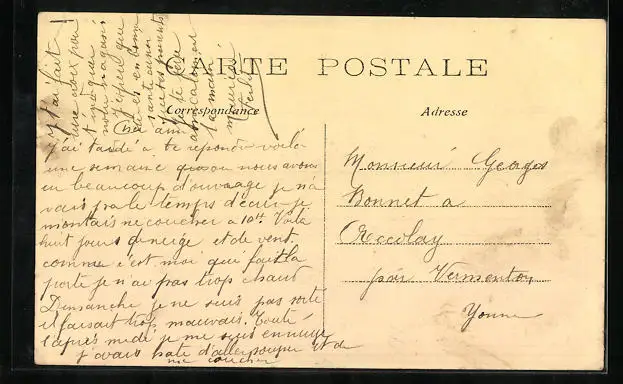 CARTE POSTALE
Correspondance
Adresse
Cher ami
j'ai tardé a te repondre voila
une semaine que nous avons
eu beaucoup d'ouvrage je n'a
vais pas le temps d'ecrire je
montais me coucher a 10H. Voila
huit jours de neige et de vent.
comme c'est moi qui fait la
porte je n'ai pas trop chaud
Dimanche je ne suis pas sorti
il faisait trop mauvais. Toute
l'après midi je me suis ennuyé
j'avais hate d'aller souper et de
me coucher
J'ai fait
une croix pour
t'indiquer
notre magasin
J'espère que
tu es en bonne
santé ainsi
que tes parents
Je te serre
amicalement
la main
Maurice
Monsieur Georges
Bonnet a
Accolay
par Vermenton
Yonne